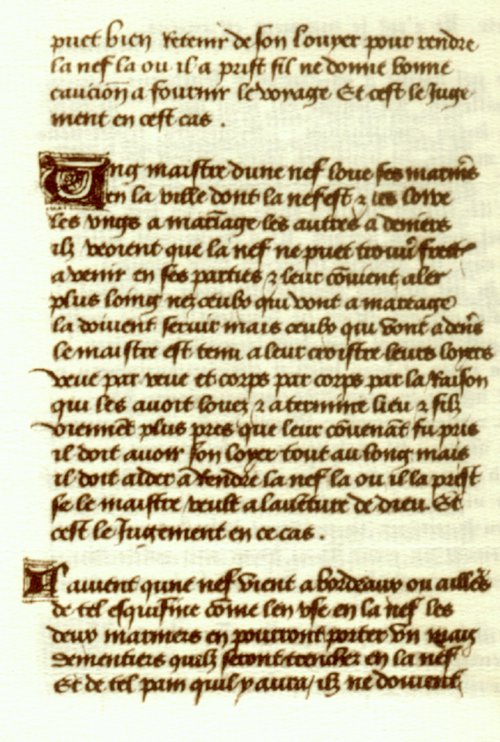 puet bien retenir de son louyer pour rendre
la nef la ou il a prist sil ne donne bonne
caucion a fournir le voyage Et cest le Juge
ment en cest cas .
Ung maistre dune nef loue ses marinrs
en la ville dont la nef est et les loue
les ungs a mariage les autres a deniers
ilz veoient que la nef ne puet trouvr fret
a venir en ses parties et leur convient aler
plus loing nez ceulx qui vont a mareage
la doivent servir mais ceulx qui vont a denrs
le maistre est tenu a leur croistre leurs loyers
veue par veue et corps par corps par la Raison
qui les avoit louez et a termine lieu et silz
viennent plus pres que leur convenant fu pris
il doit avoir son loyer tout au long mais
il doit aider a Rendre la nef la ou il la prist
se le maistre veult a laventure de dieu Et
cest le Jugement en ce cas .
Il avient qune nef vient a bordeaux ou ailleurs
de tel esquisine come len use en la nef les
deux mariners en pourront porter un mais
dementiers quilz seront trencher en la nef
Et de tel pain quil y aura / ilz ne doivent